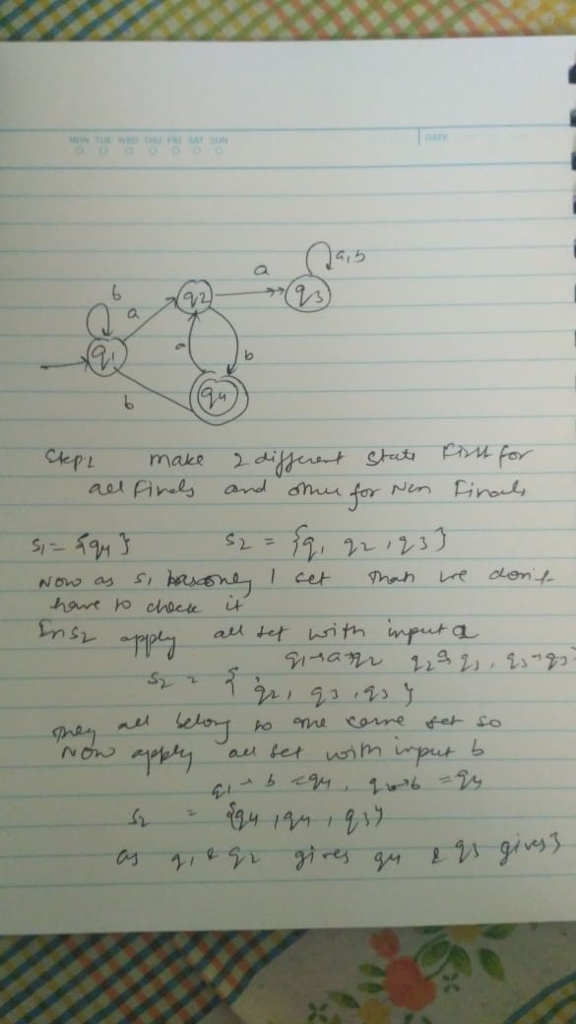 MON TUE WED THU FRI SAT SUN
DATE
a a,b
b a q2 q3
q1 a b
b q4
Step1 make 2 different State First for
all Finals and other for Non Finals
S1 = {q4} S2 = {q1 q2, q3}
Now as S1 has only 1 set that we don't
have to check it
In S2 apply all set with input a
q1→a→q2 q2 a q3, q3→q3
S2 = { q2, q3, q3 }
They all belong to one same set so
Now apply all set with input b
q1 → b = q4, q2→b = q4
S2 = {q4, q4, q3}
as q1 & q2 gives q4 & q3 gives